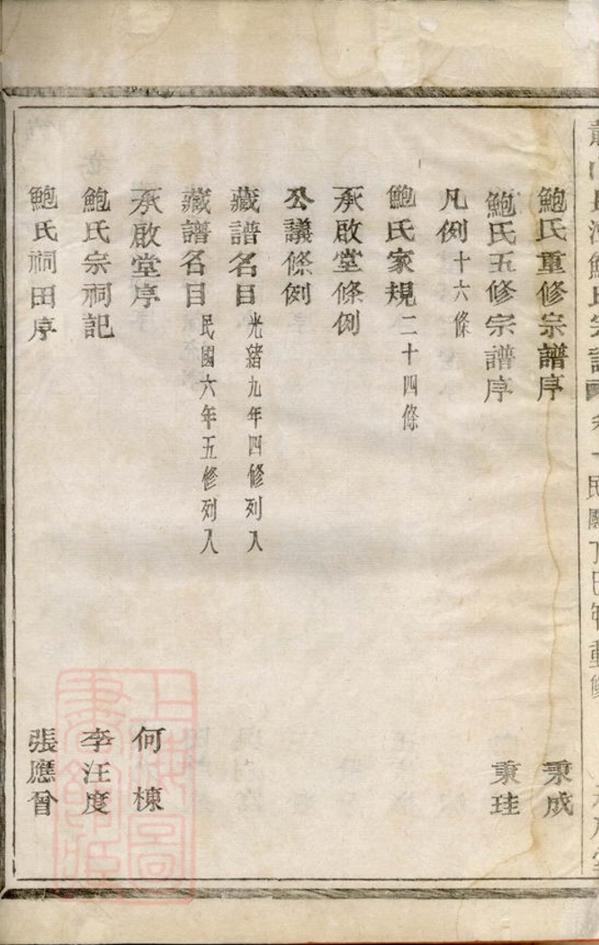 鮑氏宗譜 卷一 民國丁巳年重修
鮑氏重修宗譜序 秉成
鮑氏五修宗譜序 秉珪
凡例十六條
鮑氏家規二十四條
承啟堂條例
公議條例
藏譜名目光緒九年四修列入
藏譜名目民國六年五修列入
承啟堂序 何棟
鮑氏宗祠記 李汪度
鮑氏祠田序 張應曾